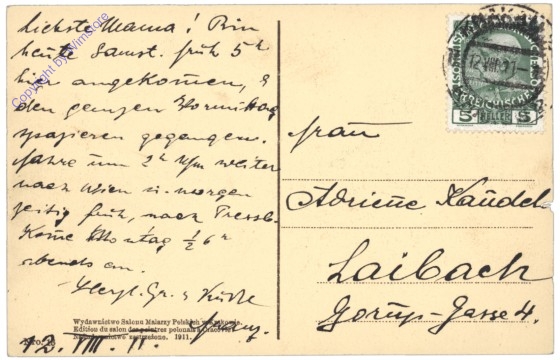 Liebste Mama! Bin
heute Samst. früh 5h
hier angekommen, &
den ganzen Vormittag
spazieren gegangen.
Fahre um 2h Nm weiter
nach Wien u. morgen
zeitig früh, nach
Komme Montag ½6h
abends an.
Herzl. Gr. & Küsse
Wydawnictwo Salonu Malarzy Polskich w Krakowie.
Edition du salon des peintres polonais à Cracovie.
1911.
12. VIII. 11.
Frau
Adriene
Laibach
Gorup-Gasse 4.
12 VIII
5 5
Copyright by WimStore